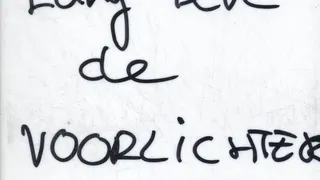 Lang leve
de
VOORLICHTER